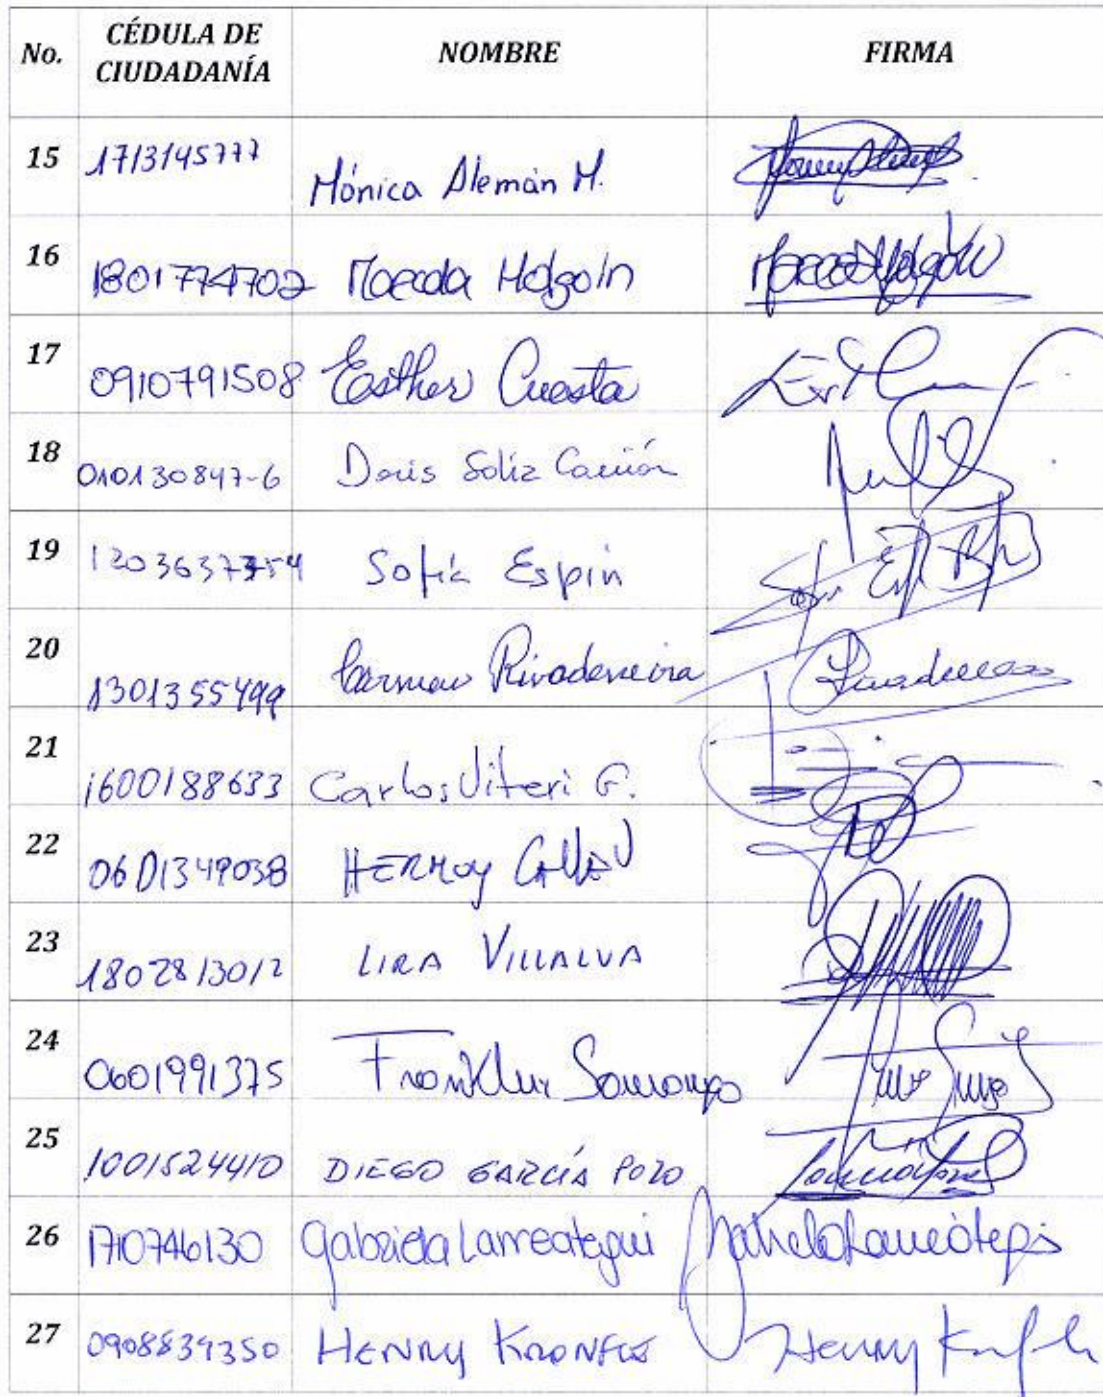 No. CÉDULA DE CIUDADANÍA NOMBRE FIRMA
15 1713145777 Mónica Alemán M.
16 1801774702 Maecda Holgoín
17 0910791508 Esther Cuesta
18 010130847-6 Doris Soliz Carrión
19 1203637354 Sofía Espín Sofía Esp
20 1301355499 Carmen Rivadeneira Rivadeneira
21 1600188633 Carlos Viteri G.
22 0601349038 HERMUY CALLE
23 1802813012 LIRA VILLALVA
24 0601991375 Franklin Samaniego
25 1001524410 DIEGO GARCÍA POZO
26 1710746130 Gabriela Larreategui Gabriela Larreátegui
27 0908834350 HENRY KRONFLE Henry